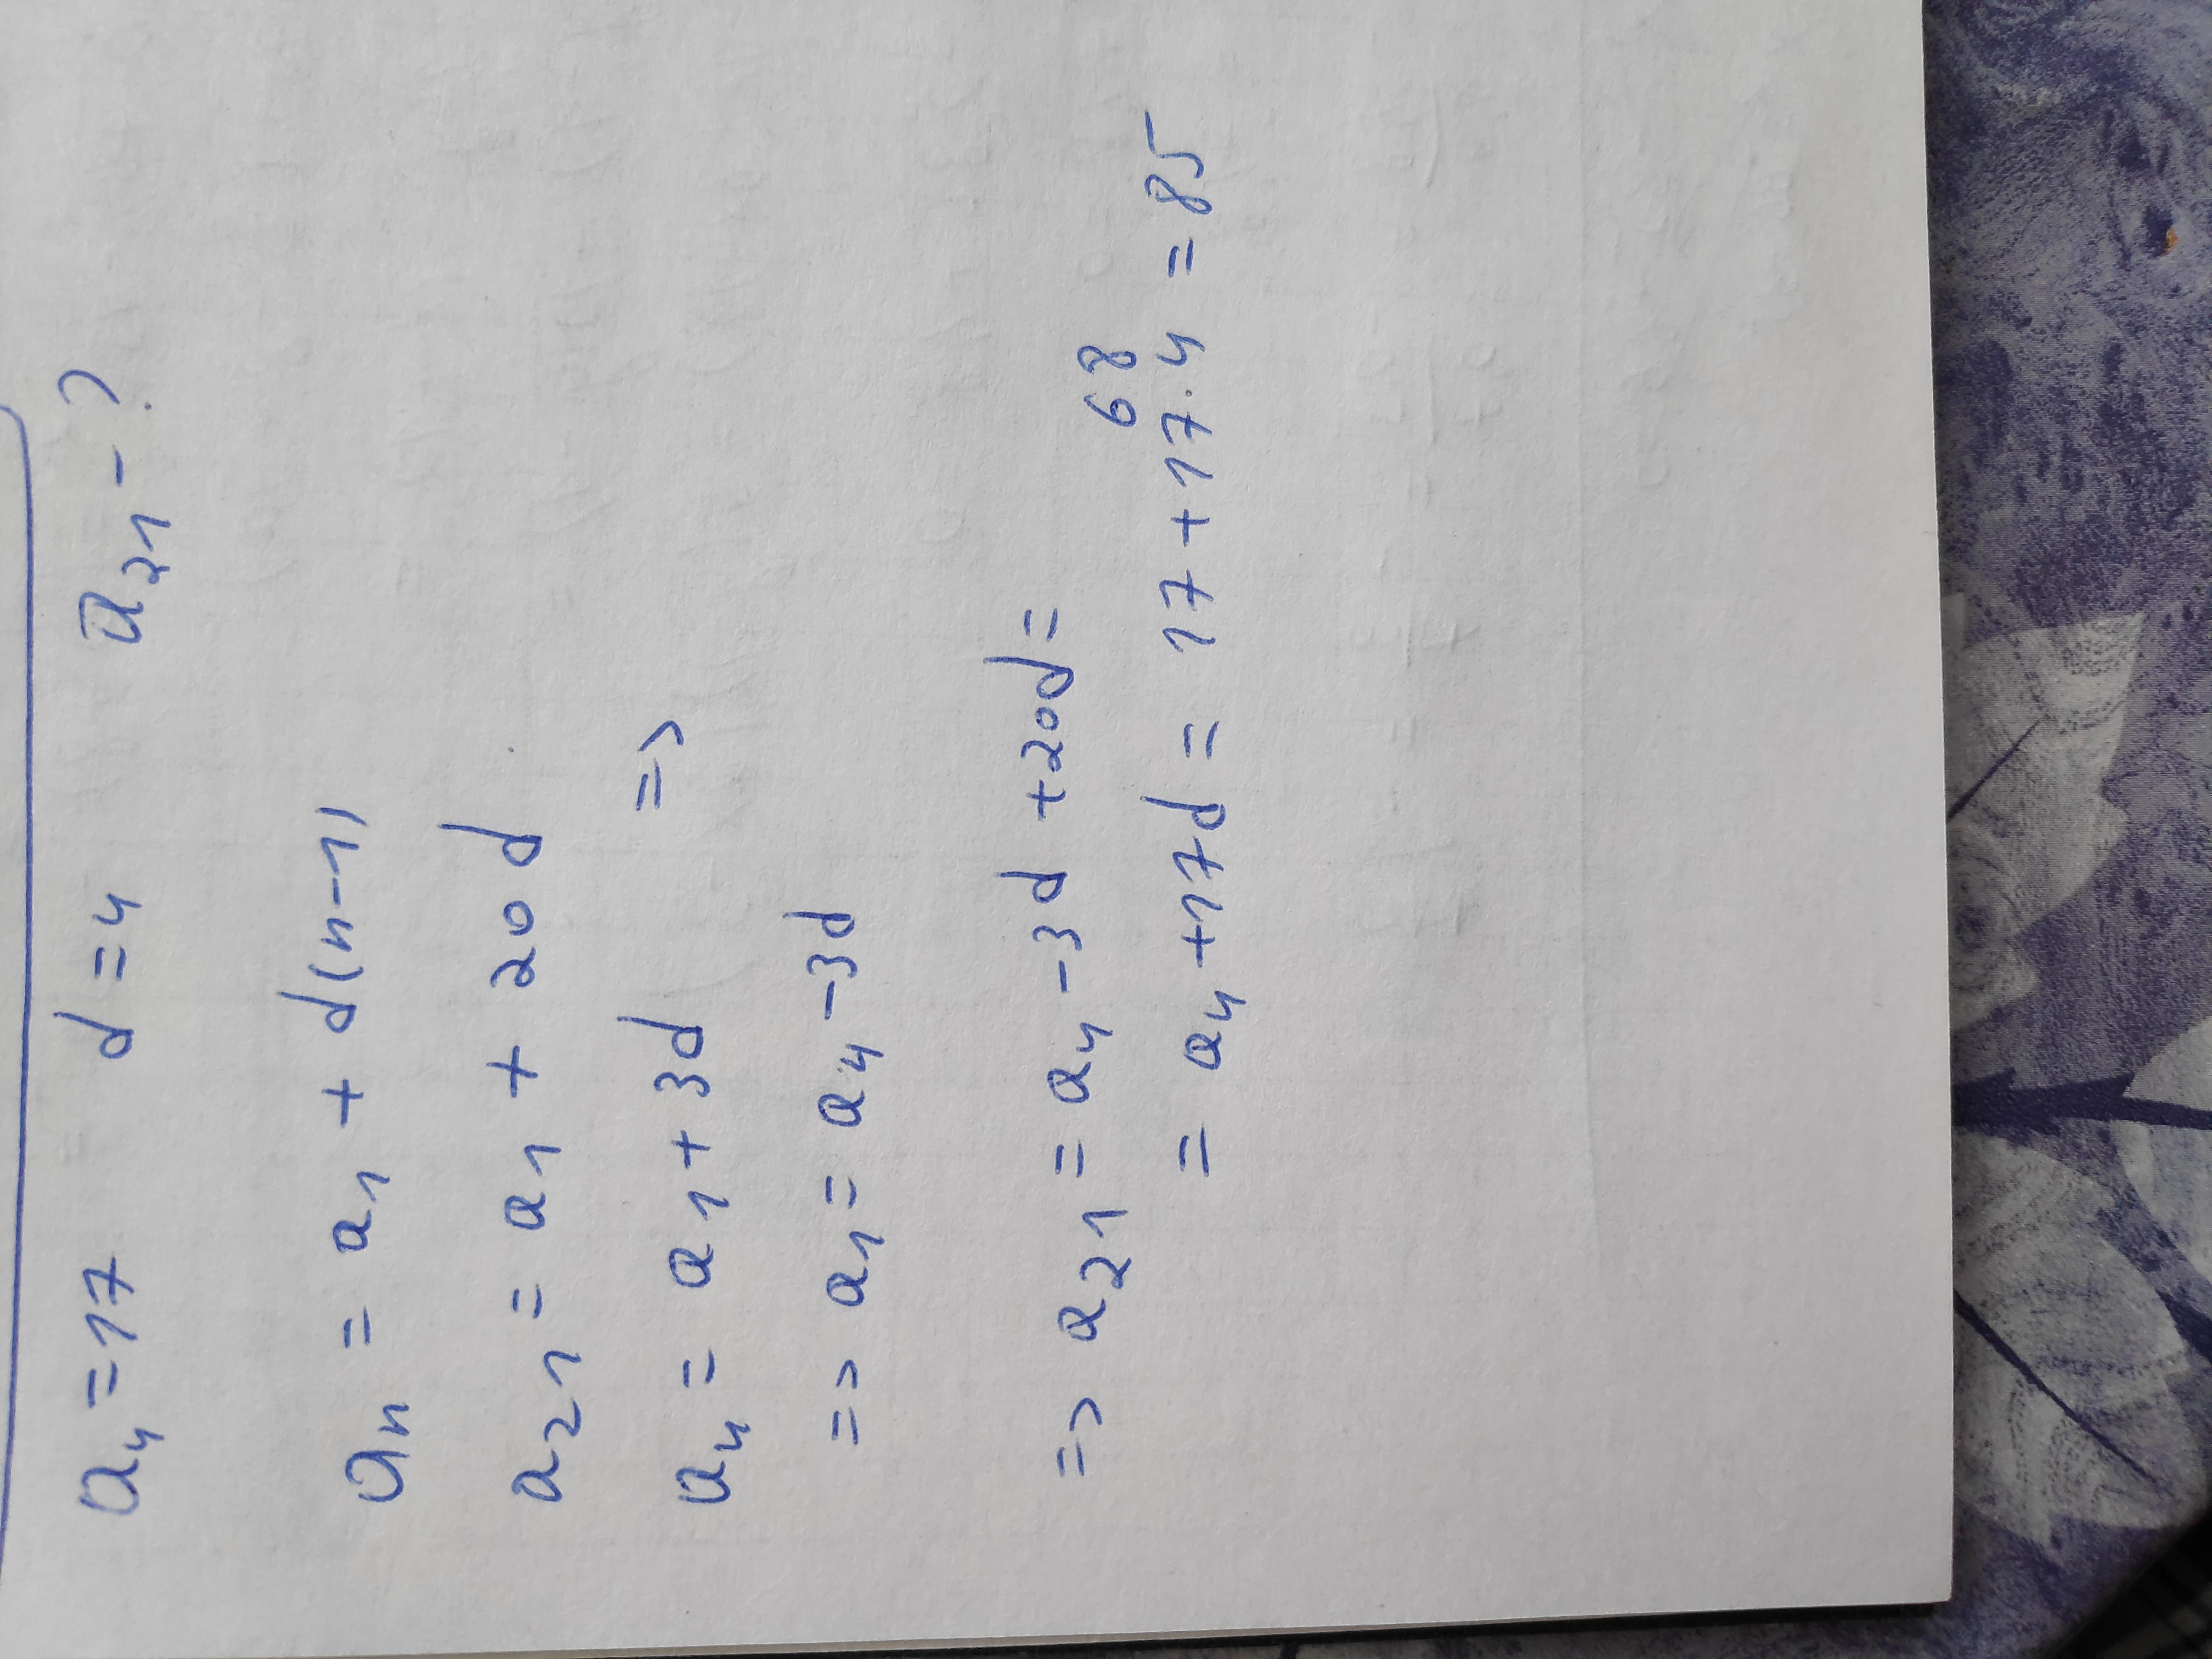 a₄ = 17   d = 4   a₂₁ - ?
aₙ = a₁ + d(n-1)
a₂₁ = a₁ + 20d
a₄ = a₁ + 3d   =>
=> a₁ = a₄ - 3d
=> a₂₁ = a₄ - 3d + 20d =
68
= a₄ + 17d = 17 + 17·4 = 85